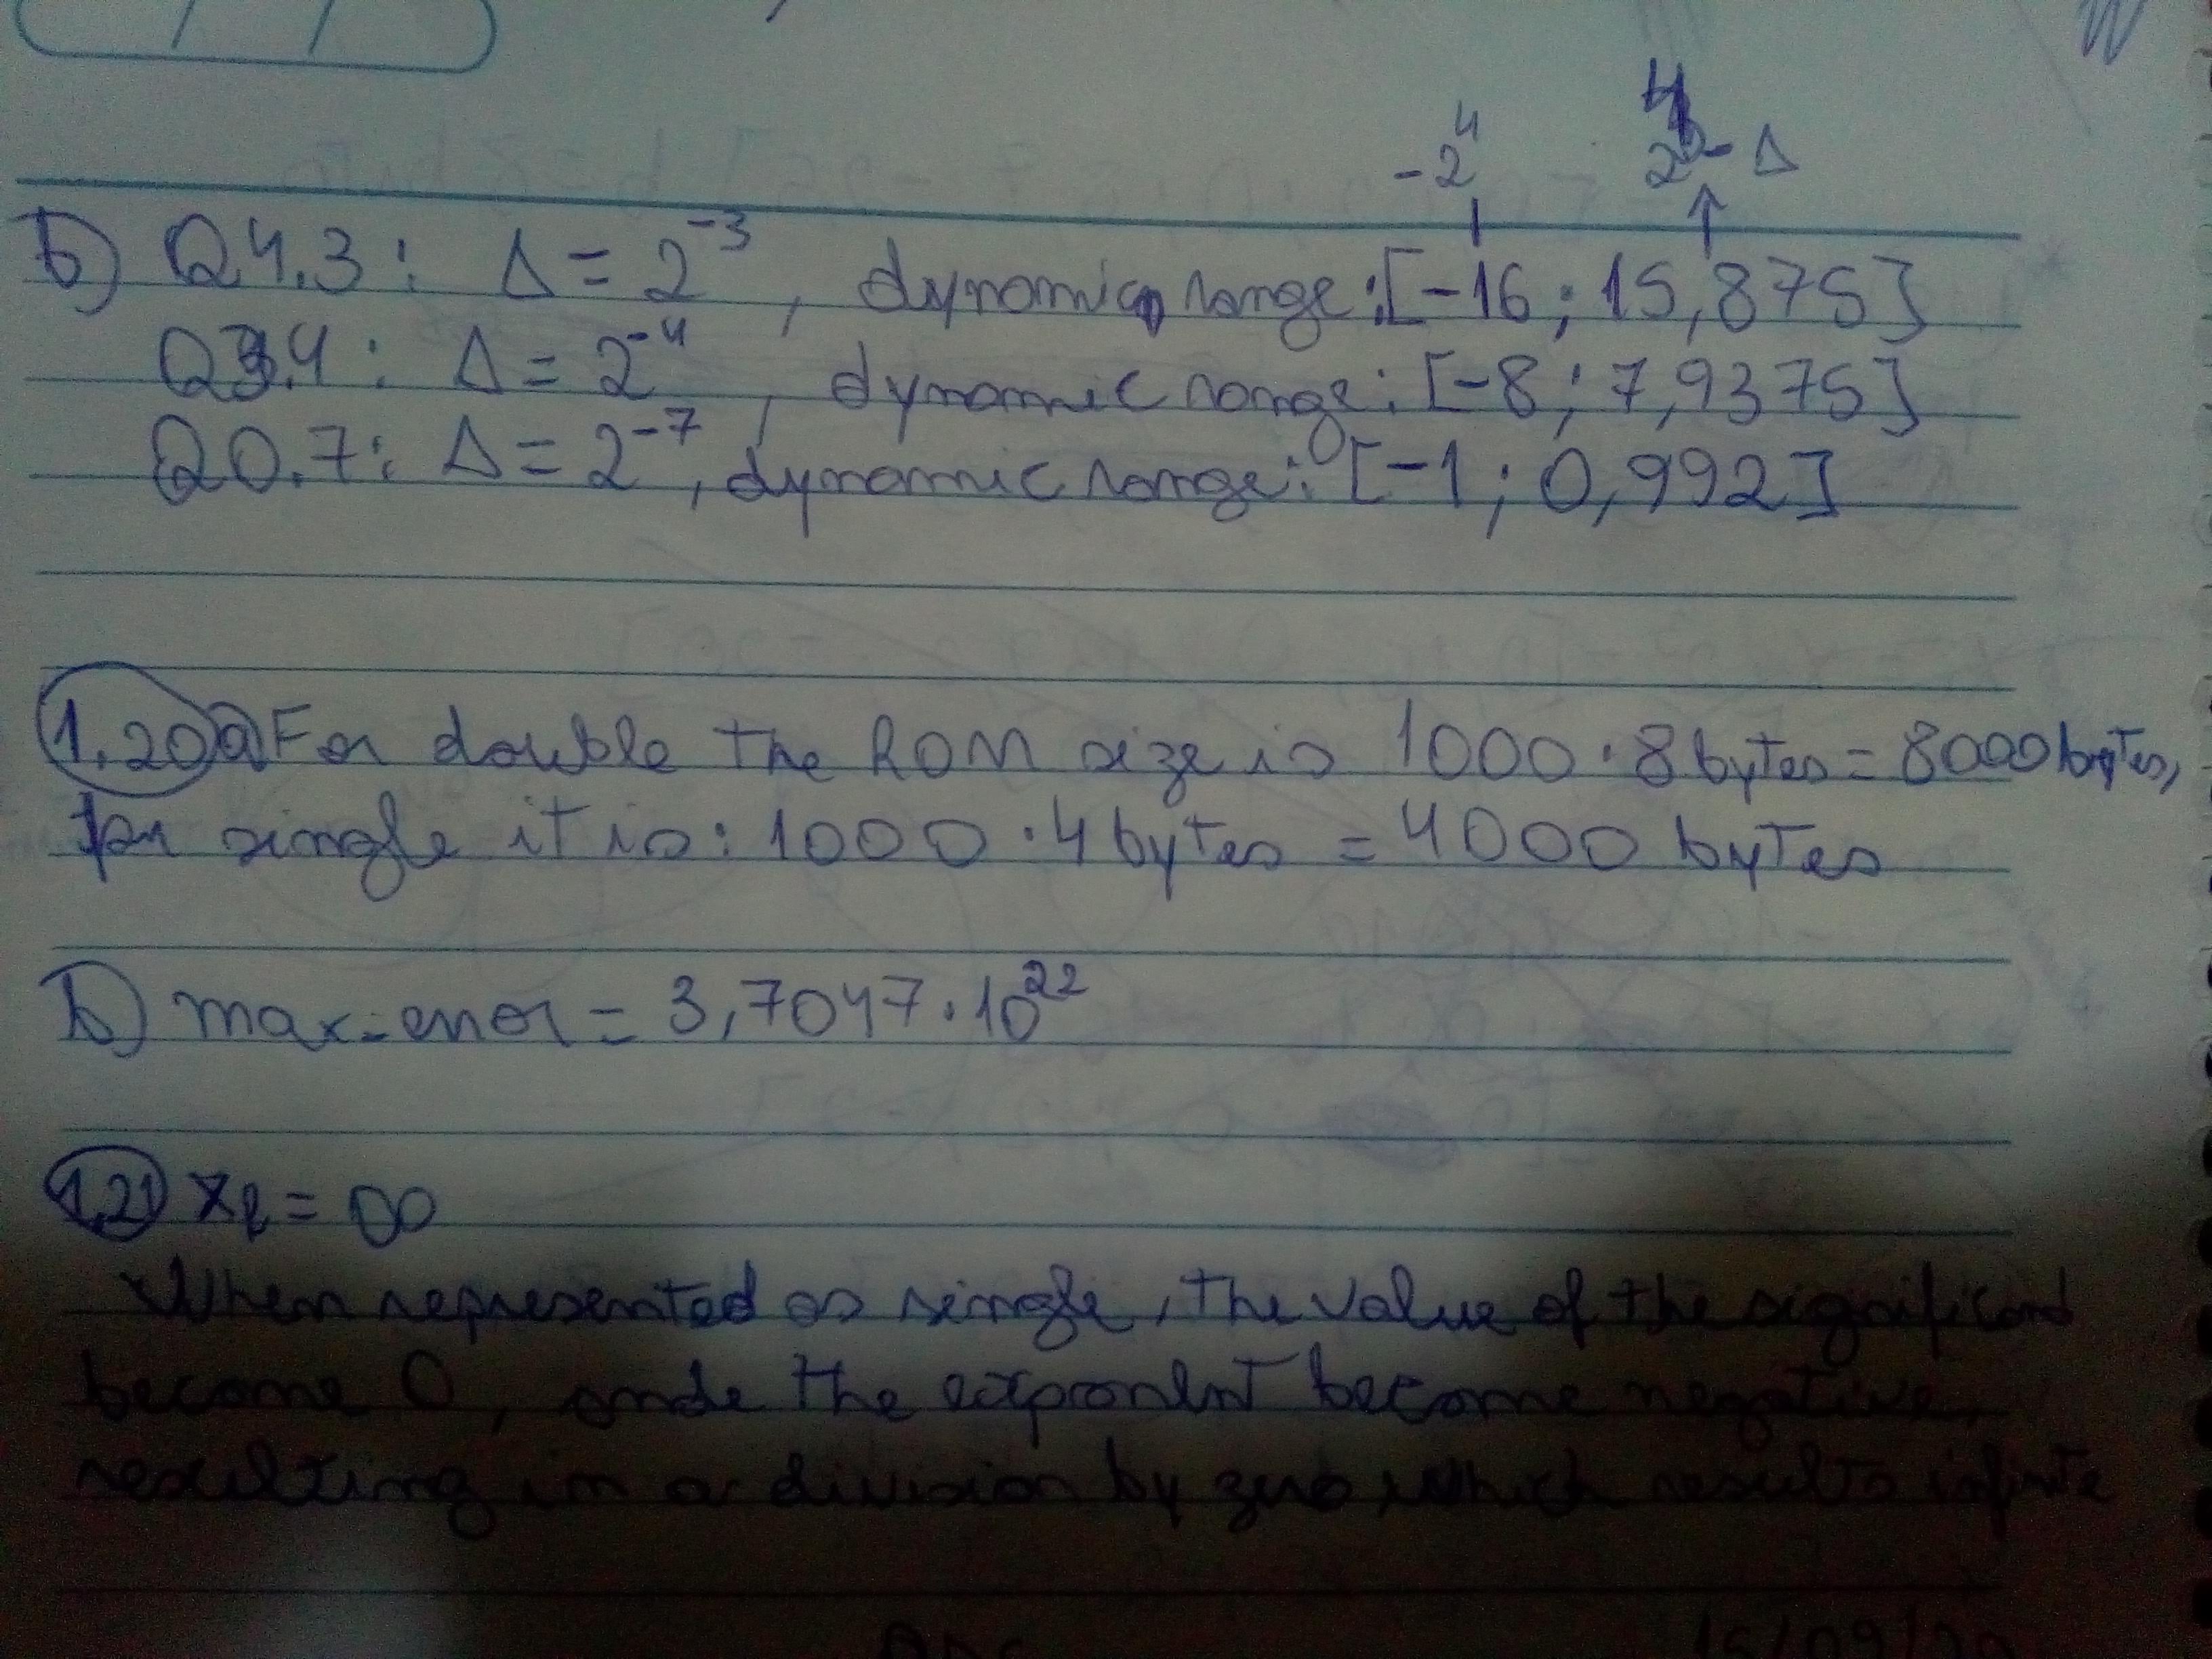 -2^4 2^4 - Δ
b) Q4.3: Δ = 2^-3, dynamic range: [-16; 15,875]
Q3.4: Δ = 2^-4, dynamic range: [-8; 7,9375]
Q0.7: Δ = 2^-7, dynamic range: [-1; 0,992]
1.20 a) For double the ROM size is 1000 · 8 bytes = 8000 bytes,
for single it is: 1000 · 4 bytes = 4000 bytes
b) max-error = 3,7047 · 10^22
1.21 = ∞
When represented as single, the value of the significand
become 0, the exponent become negative,
resulting in a division by zero, which results infinite
15/09/20